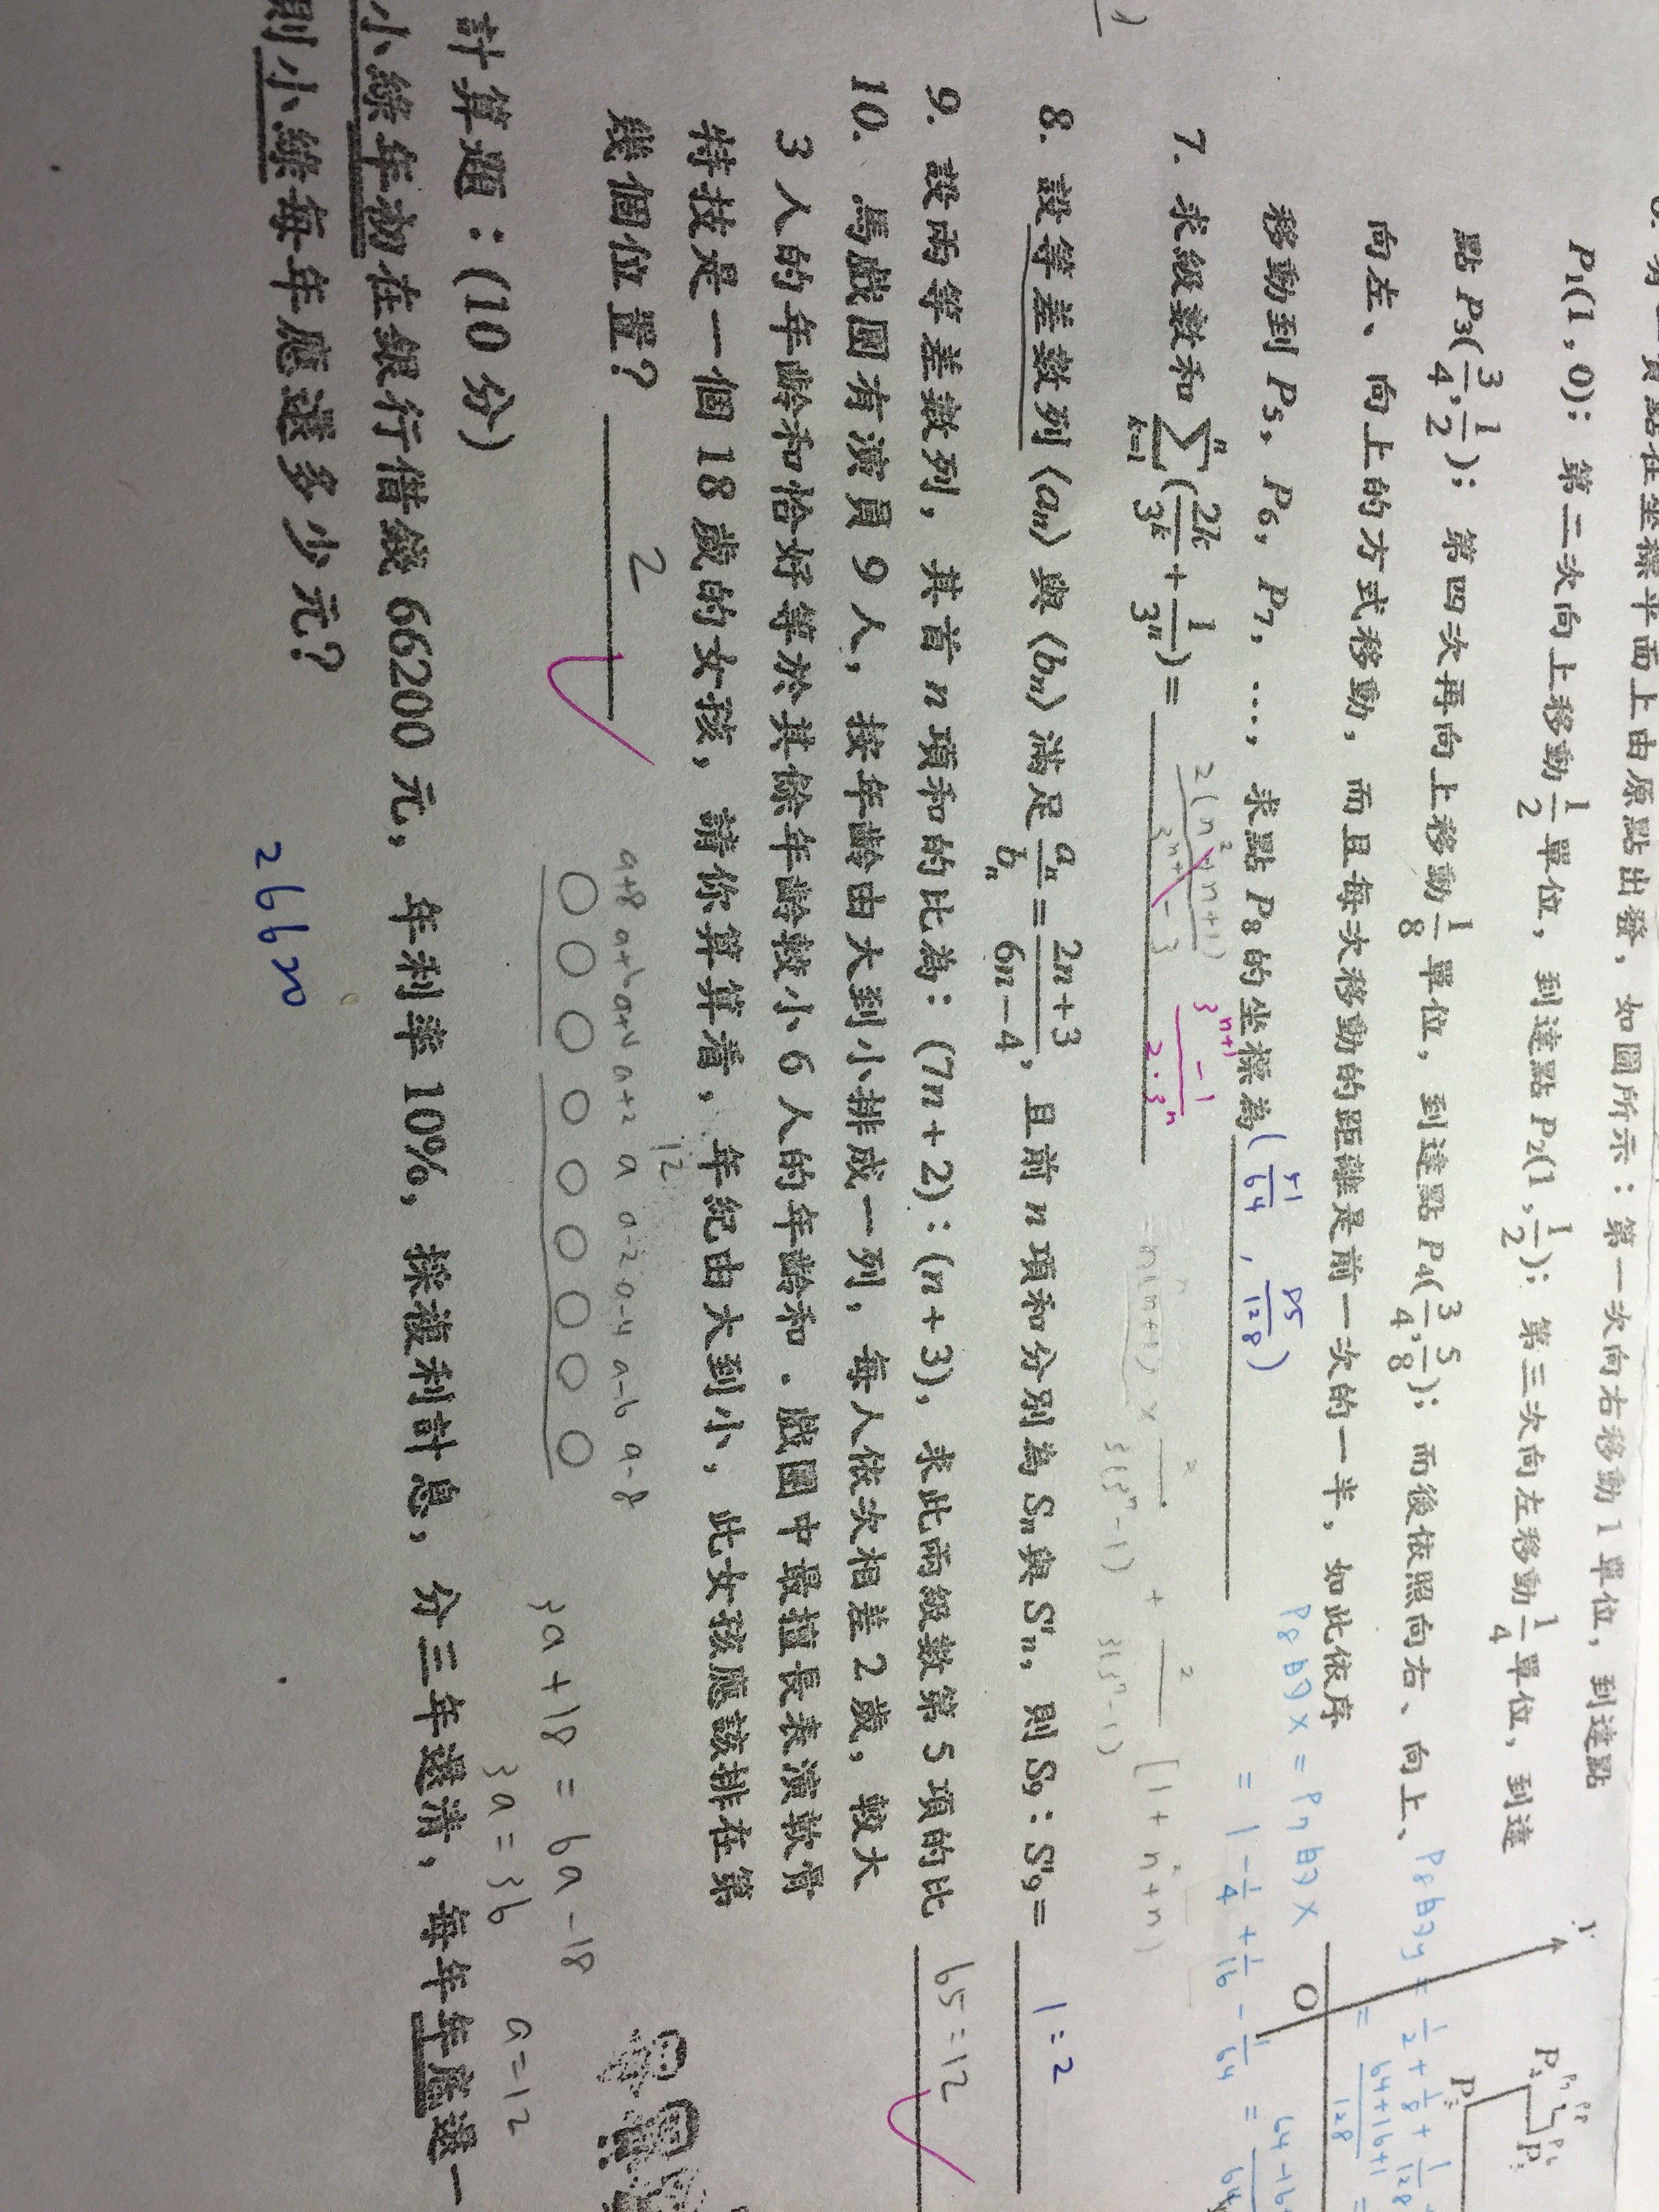 點在坐標平面上由原點出發，如圖所示：第一次向右移動 1 單位，到達點
P₁(1, 0)；第二次向上移動 1/2 單位，到達點 P₂(1, 1/2)；第三次向左移動 1/4 單位，到達
點 P₃(3/4, 1/2)；第四次再向上移動 1/8 單位，到達點 P₄(3/4, 5/8)；而後依照向右、向上、
向左、向上的方式移動，而且每次移動的距離是前一次的一半，如此依序
移動到 P₅, P₆, P₇, …, 求點 P₈ 的坐標為 (51/64, 85/128)
P8的y = 1/2 + 1/8 +
= 64+16+1 / 128
P8的x = P7的x
= 1 - 1/4 + 1/16 - 1/64 =
7. 求級數和 Σ(k=1, n) (2k/3ᵏ + 1/3ⁿ) =
3ⁿ⁺¹ - 1 / 2·3ⁿ
8. 設等差數列 ⟨aₙ⟩ 與 ⟨bₙ⟩ 滿足 aₙ/bₙ = (2n+3)/(6n−4), 且前 n 項和分別為 Sₙ 與 S'ₙ, 則 S₉：S'₉ = 1:2
9. 設兩等差數列，其首 n 項和的比為：(7n + 2)：(n + 3), 求此兩級數第 5 項的比 65:12
10. 馬戲團有演員 9 人，按年齡由大到小排成一列，每人依次相差 2 歲，較大
3 人的年齡和恰好等於其餘年齡較小 6 人的年齡和．戲團中最擅長表演軟骨
特技是一個 18 歲的女孩，請你算算看，年紀由大到小，此女孩應該排在第
幾個位置？ 2
12
a+8 a+6 a+4 a+2 a a-2 a-4 a-6 a-8
3a+18 = 6a-18
3a = 36
a = 12
計算題：(10 分)
小綠年初在銀行借錢 66200 元，年利率 10%，採複利計息，分三年還清，每年年底還一
則小綠每年應還多少元？
26620